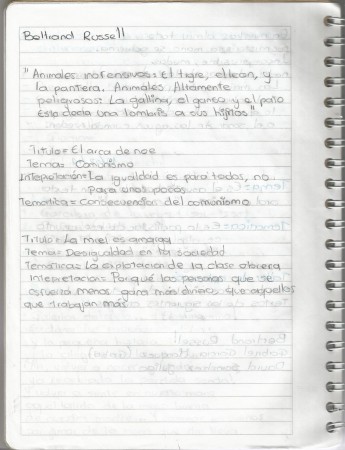 Beltrand Russell
"Animales inofensivos: El tigre, el leon, y
la pantera. Animales Altamente
peligrosos: La gallina, el ganso y el pato
Esto decia una lombris a sus hijitos"
Titulo = El arca de noe
Tema: Comunismo
Interpretación = La igualdad es para todos, no
Para unos pocos.
Tematica = Consecuencion del comunismo
Titulo = La miel es amarga
Tema = Desigualdad en la sociedad
Tematica = La explotacion de la clase obrera
Interpretacion = Porqué las personas que se
esfuerza menos gana más dinero que aquellos
que trabajan más